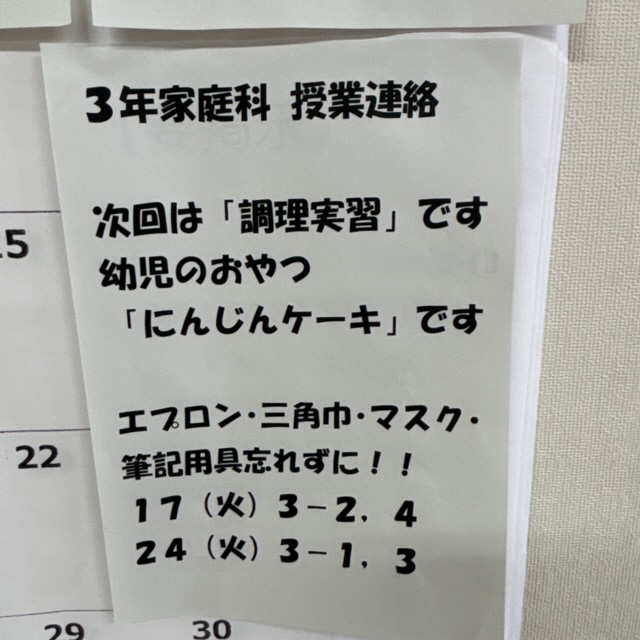 3年家庭科 授業連絡
次回は「調理実習」です
幼児のおやつ
「にんじんケーキ」です
エプロン・三角巾・マスク・
筆記用具忘れずに！！
17（火）3－2，4
24（火）3－1，3
15
22
29
30